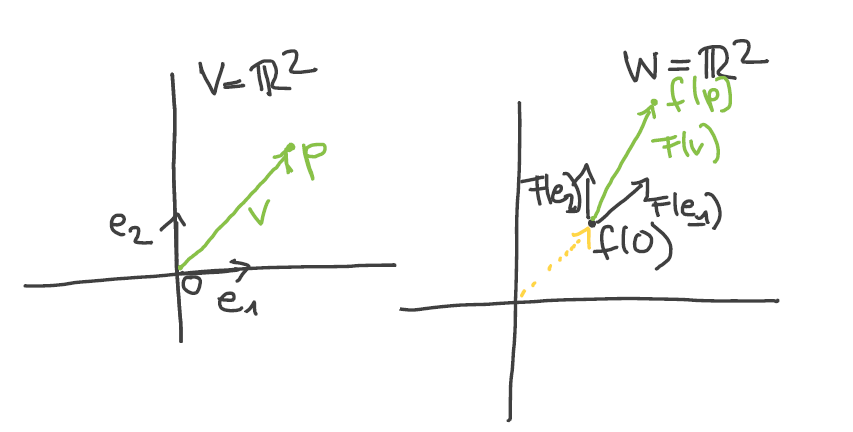 V=ℝ²
p
v
e₂
0
e₁
W=ℝ²
f(p)
F(v)
F(e₂)
F(e₁)
f(0)